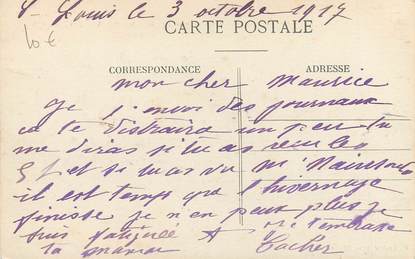 St Louis le 3 octobre 1917
10 €
CARTE POSTALE
CORRESPONDANCE
ADRESSE
mon cher Maurice
je t'envoi des journaux
ca te distraira un peu tu
me diras si tu as recu les
et si tu as vu Mr
il est temps que l'hivernage
finisse je n en peux plus je
suis fatiguée
ta maman